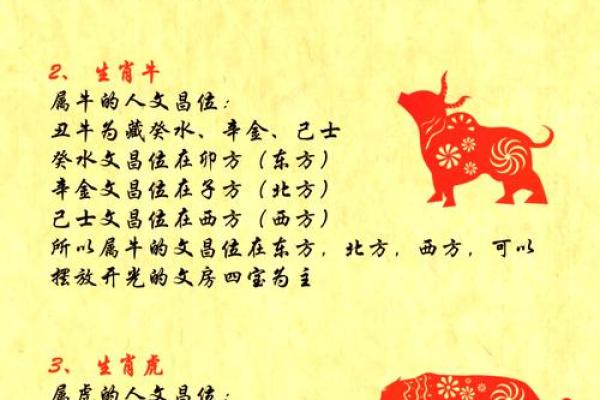 2、 生肖牛
属牛的人文昌位：
丑牛为藏癸水、辛金、己士
癸水文昌位在卯方（东方）
辛金文昌位在子方（北方）
己士文昌位在西方（西方）
所以属牛的文昌位在东方，北方，西方，可以
摆放开光的文房四宝为主
3、 生肖虎
属虎的人文昌位：